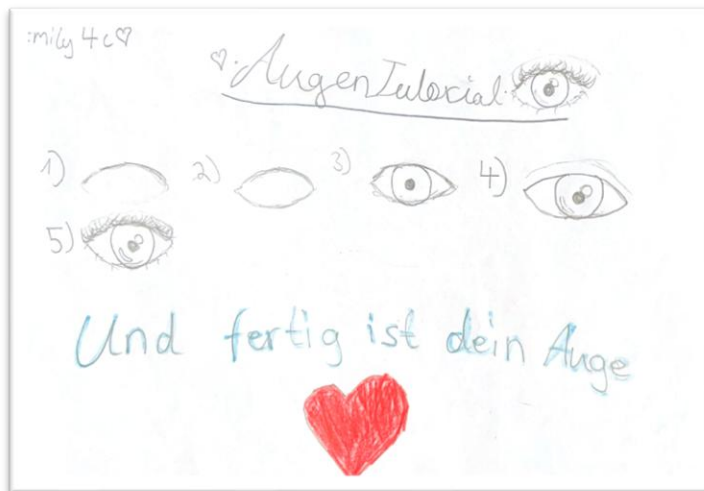 :mily 4c♡
♡. Augen Tutorial.
1) 2) 3) 4)
5)
Und fertig ist dein Auge